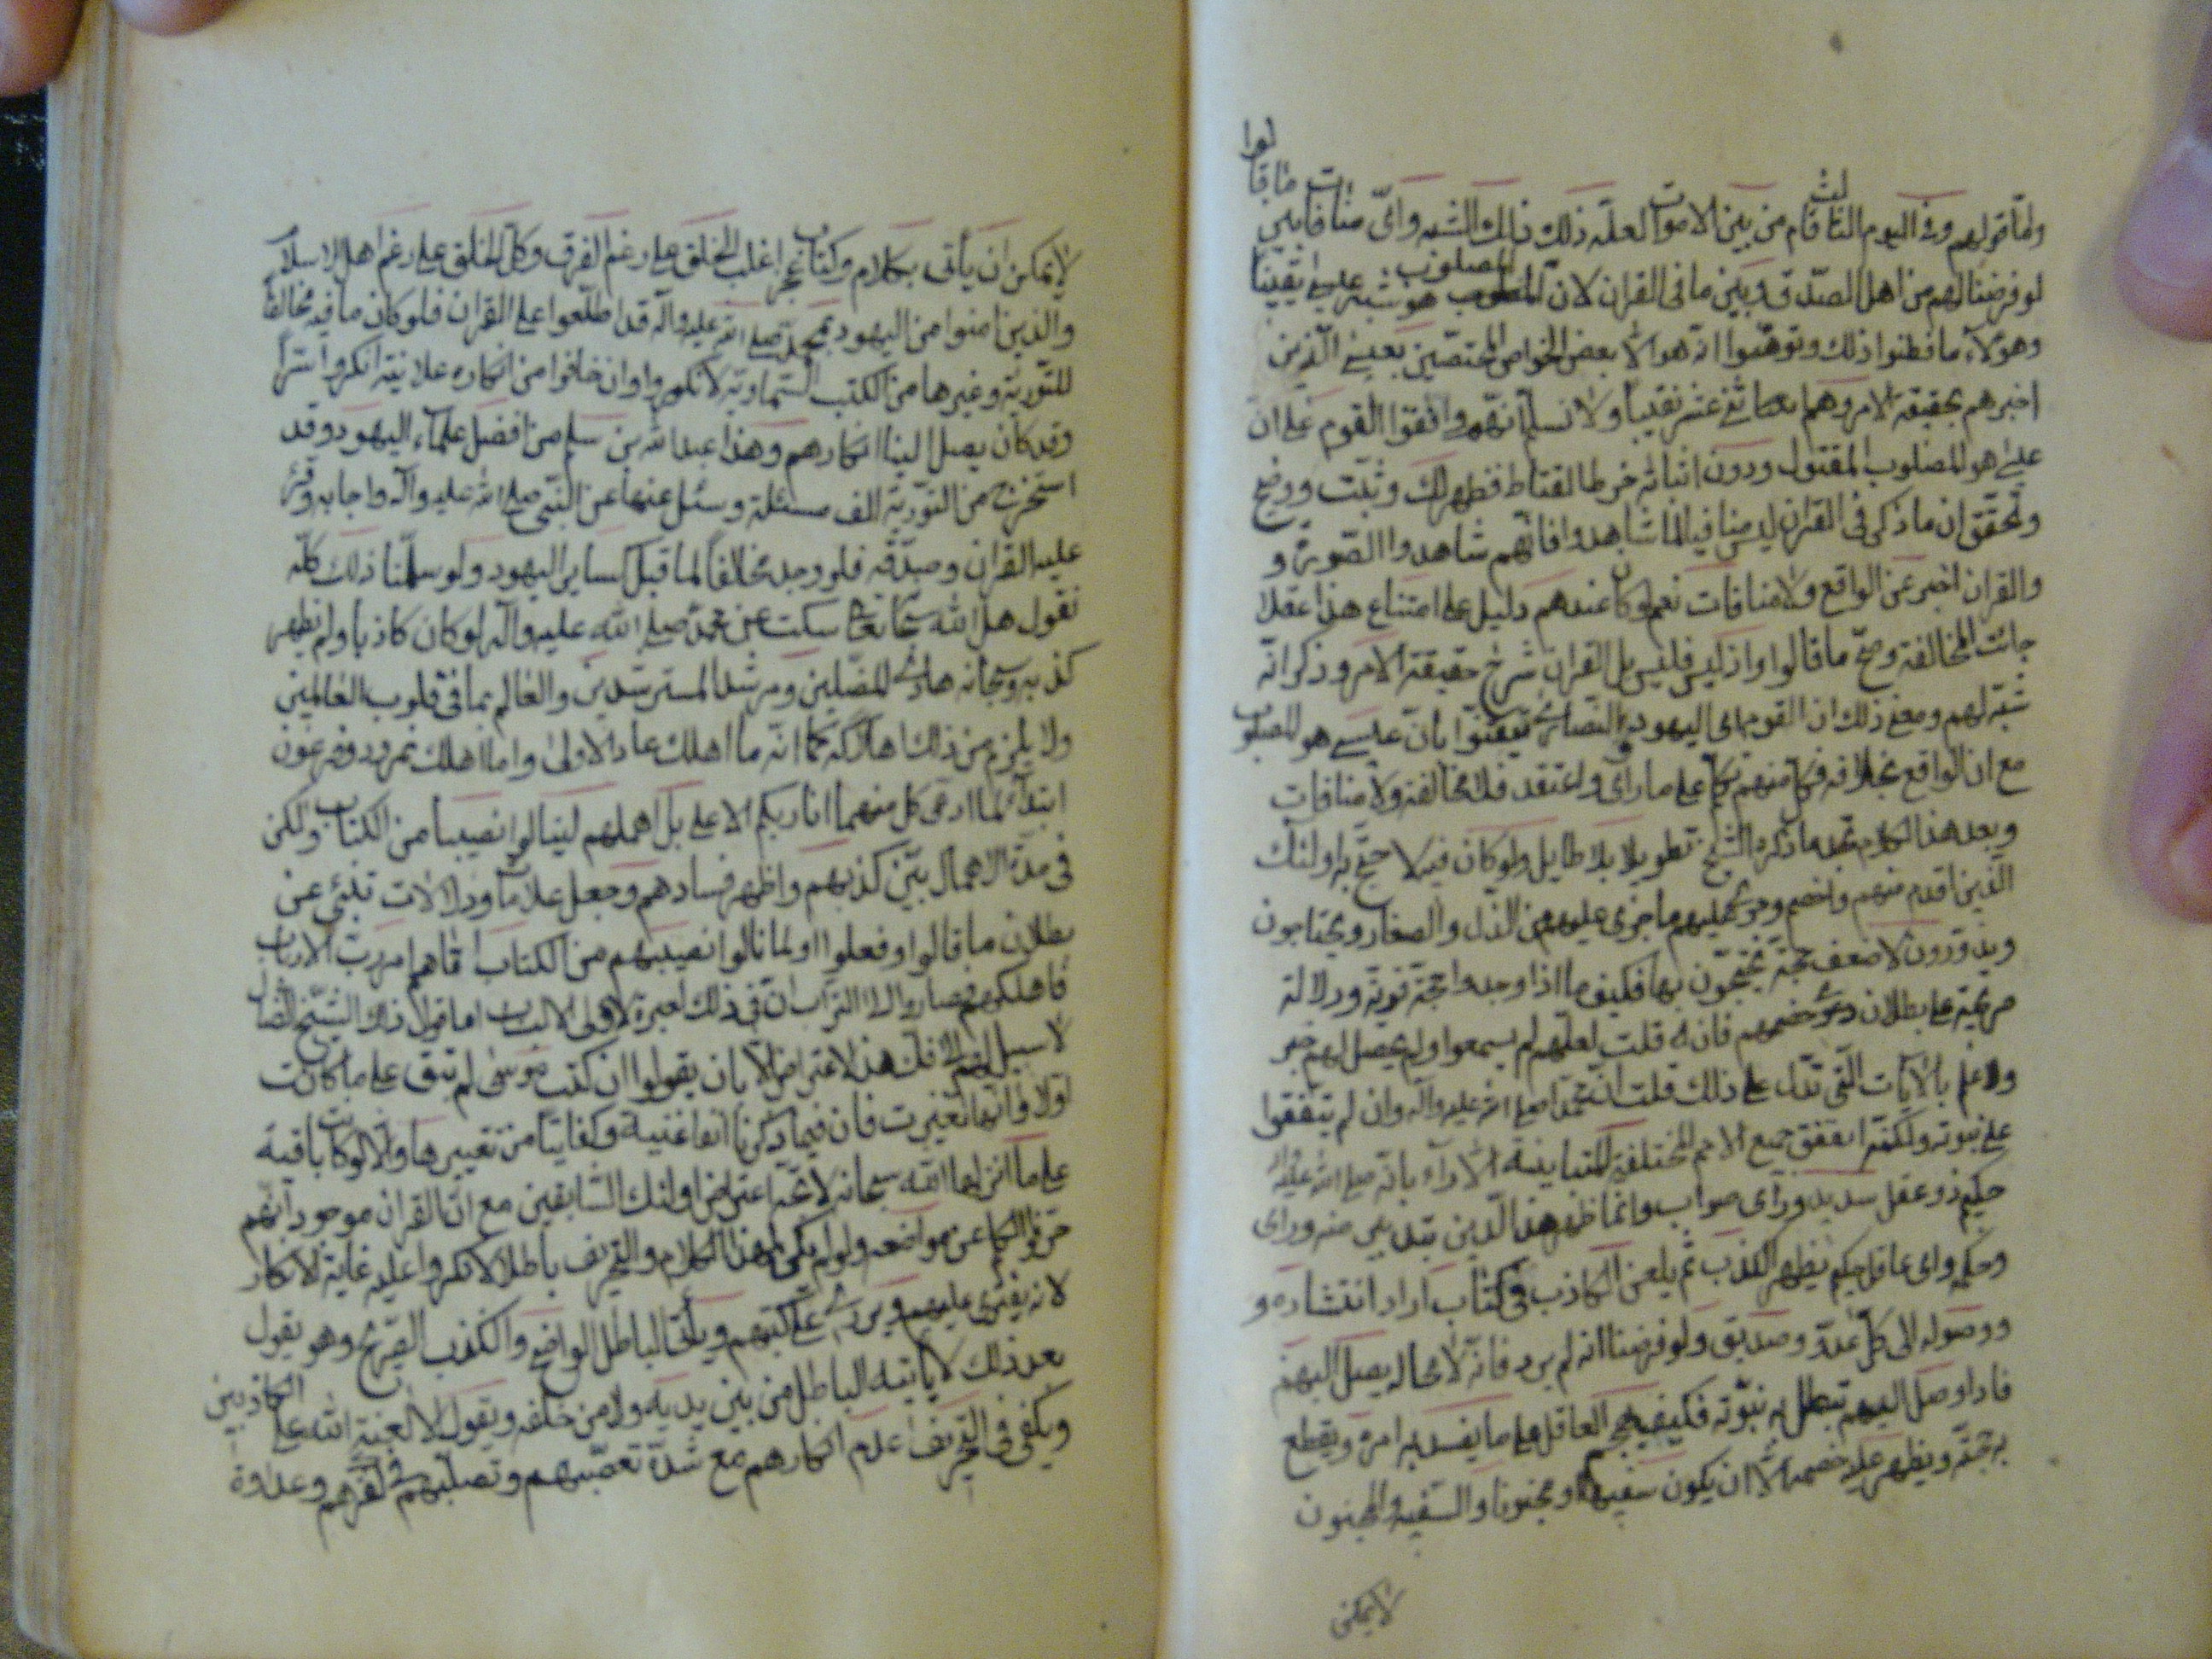 واما قولهم وفي اليوم الثالث قام من بين الاموات لعله ذلك ذلك الشبه واىّ منافات بين ما قالوا
لو فرضنا لهم من اهل الصدق وبين ما فى القران لان المصلوب هو شبه عليه يقينا
وهؤلاء ما فطنوا ذلك وتوهّموا انه هو الا بعض الخواص المختصّين بعيسى الذين
اخبرهم بحقيقة الامر وهم اثنى عشر نقيبا ولا نسلم انهم وافقوا القوم على ان
عيسى هو المصلوب المقتول ودون اثباته خرط القتاط فظهر لك وثبت ووضح
وتحقق ان ما ذكر فى القران ليس منافيا لما شاهدوا فانهم شاهدوا الصورة و
والقران اخبر عن الواقع ولا منافات نعم لو كان عندهم دليل على امتناع هذا عقلا
جائت المخالفة وصحّ ما قالوا واذ ليس فليس بل القران شرح حقيقة الامر وذكر انه
شبّه لهم ومعنى ذلك ان القوم اى اليهود والنصارى تيقنوا بان عيسى هو المصلوب
مع ان الواقع بخلافه فكل منهم تكلم على ما راى واعتقد فلا مخالفة ولا منافات
وبعد هذا الكلام تجد ما ذكره الشيخ تطويلا بلا طايل ولو كان فيه لاحتجّ به اولئك
الذين اقدم منهم واخصم وجرى عليهم ما جرى عليهم من الذل والصغار ويحتاجون
ويدورون لاضعف حجة يحتجّون بها فكيف ما اذا وجدوا حجة قوية ودلالة
صريحة على بطلان دعوى خصمهم فان قلت لعلهم لم يسمعوا ولم يحصل لهم خبر
ولا علم بالايات التى تدل على ذلك قلت ان محمدا صلى الله عليه وآله وان لم يتفقوا
على نبوته ولكنه اتفق جميع الامم المختلفة المتباينة الاراء بانه صلى الله عليه وآله
حكيم ذو عقل سديد وراى صواب وانما ظهر هذا الدين بتدبير منه وراى
وحكمة واى عاقل حكيم يظهر الكذب ثم يلعن الكاذب فى كتاب اراد انتشاره و
ووصوله الى كل عدوّ وصديق ولو فرضنا انه لم يرد فانه لا محالة يصل اليهم
فاذا وصل اليهم تبطل به نبوّته فكيف العاقل على ما يفسد به امره ويقطع
به حجته ويظهر عليه خصمه الا ان يكون سفيها او مجنونا والسفيه والمجنون
لا يمكن
لا يمكن ان يأتى بكلام وكتاب اغلب الخلق على رغم الفرق وكل الخلق على رغم اهل الاسلام
والذين امنوا من اليهود بمحمد صلى الله عليه وآله قد اطلعوا على القران فلو كان ما فيه مخالفا
للتورية وغيرها من الكتب السّماوية لانكروا وان خافوا من انكاره علانية انكروا سرّا
وقد كان يصل الينا انكارهم وهذا عبد الله بن سلام من افضل علماء اليهود وقد
استخرج من التورية الف مسئلة وسئل عنها عن النبى صلى الله عليه وآله واجابه وقرء
عليه القران وصدّقه فلو وجد مخالفا لما قبل كساير اليهود ولو سلّمنا ذلك كله
نقول هل الله سبحانه سكت عن محمد صلى الله عليه وآله لو كان كاذبا ولم يظهر
كذبه وسبحانه هادى المضلين ومرشد المسترشدين والعالم بما فى قلوب العالمين
ولا يلزم من ذلك هلاكه كما انه ما اهلك عاد الاولى وما اهلك نمرود وفرعون
ابتداء لما ادعى كل منهما انا ربكم الاعلى بل امهلهم لينالوا نصيبا من الكتاب ولكن
فى مدة الامهال بيّن كذبهم واظهر فسادهم وجعل علامات ودلالات تنبئ عن
بطلان ما قالوا وفعلوا ولما نالوا نصيبهم من الكتاب اتاهم امر رب الارباب
فاهلكهم فصاروا الى التراب ان فى ذلك لعبرة لاولى الالباب اما قول ذلك الشيخ الضال
لا سبيل لهم الى فك هذا الاعتراض الا بان يقولوا ان كتب موسى لم تبق على ما كانت
اولا وانها تغيرت فان فيما ذكرنا انفا غنية وكفاية من تغييرها والا لو كانت باقية
على ما انزلها الله سبحانه لاتجه اعتراض اولئك السابقين مع ان القران موجود انهم
حرّفوا الكلم عن مواضعه ولو لم يكن هذا الكلام والتحريف باطلا لانكروا عليه غاية الانكار
لانه يفترى عليهم ويزرى على كتبهم ويأتى الباطل الواضح والكذب الصريح وهو يقول
بعد ذلك لا يأتيه الباطل من بين يديه ولا من خلفه ويقول الا لعنة الله على الكاذبين
ويكفى فى التحريف عدم انكارهم مع شدة تعصّبهم وتصلّبهم فى كفرهم وعداوة